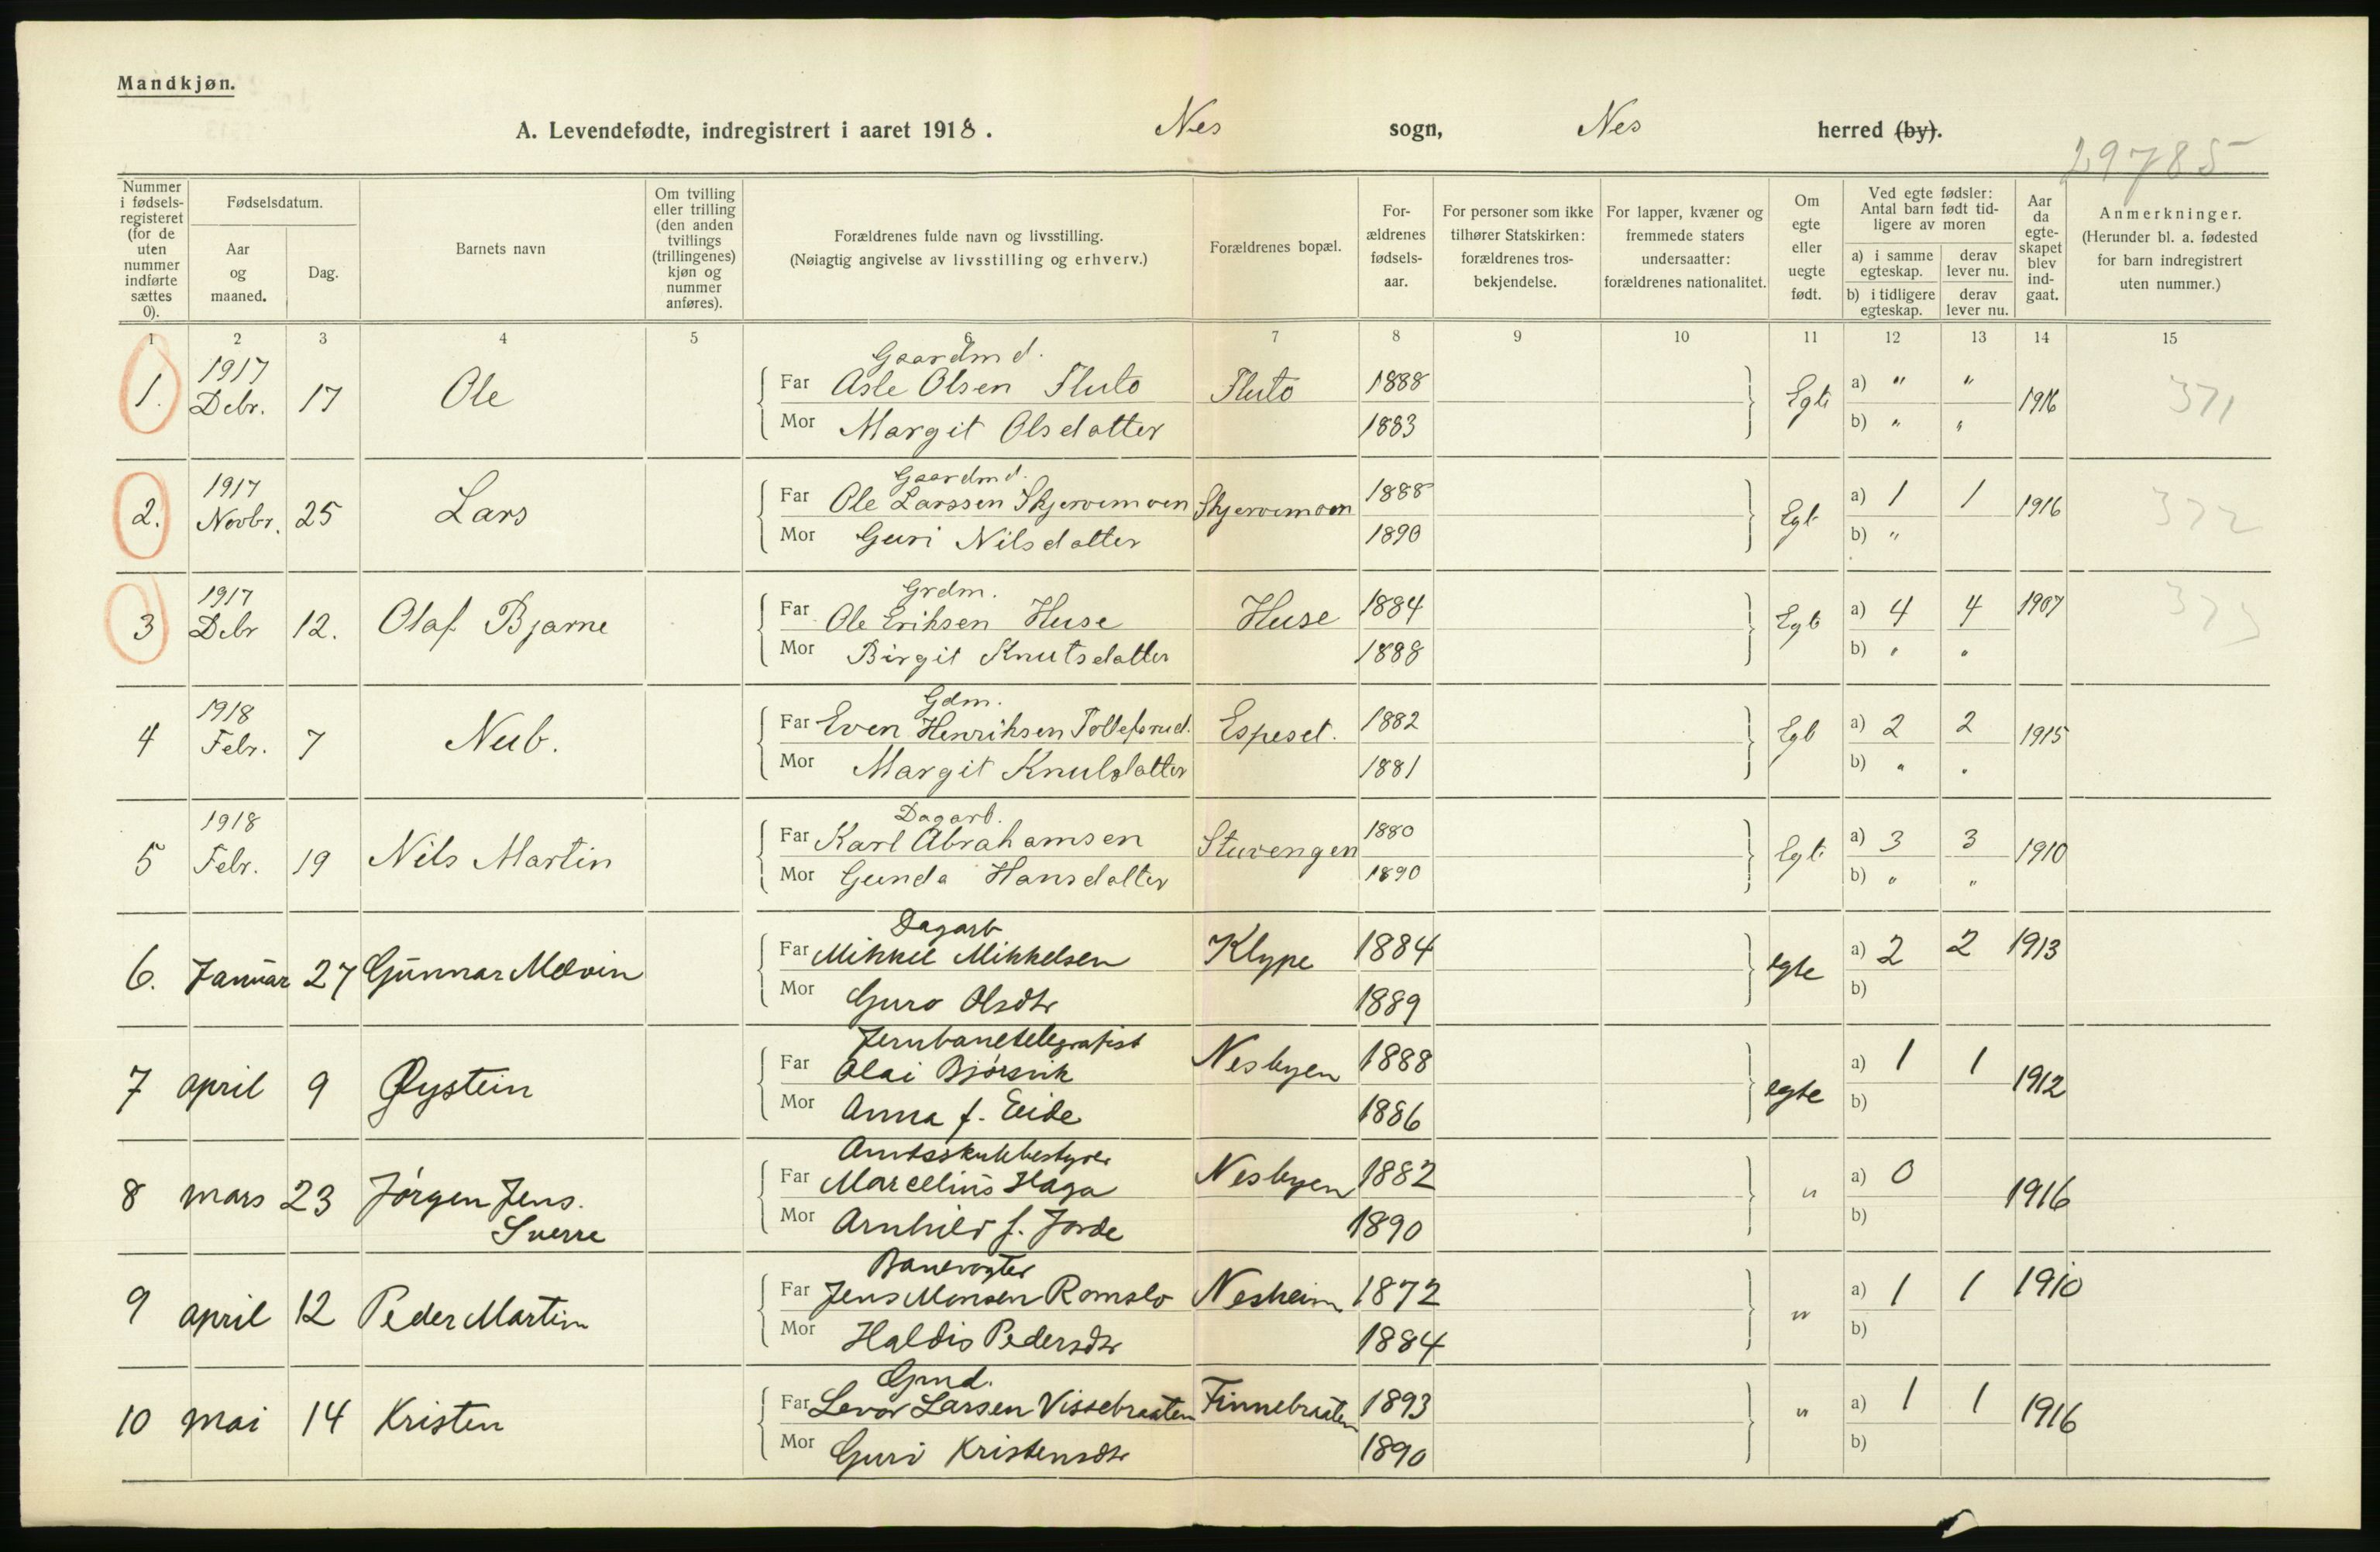 Mandkjøn.
A. Levendefødte, indregistrert i aaret 1918. Nes sogn, Nes herred (by).
29785
Nummer i fødsels-registeret (for de uten nummer indførte sættes 0).
Fødselsdatum.
Aar og maaned.
Dag.
Barnets navn
Om tvilling eller trilling (den anden tvillings (trillingenes) kjøn og nummer anføres).
Forældrenes fulde navn og livsstilling.
(Nøiagtig angivelse av livsstilling og erhverv.)
Forældrenes bopæl.
For-ældrenes fødsels-aar.
For personer som ikke tilhører Statskirken: forældrenes tros-bekjendelse.
For lapper, kvæner og fremmede staters undersaatter: forældrenes nationalitet.
Om egte eller uegte født.
Ved egte fødsler: Antal barn født tid-ligere av moren
a) i samme egteskap.
derav lever nu.
b) i tidligere egteskap.
derav lever nu.
Aar da egte-skapet blev ind-gaat.
Anmerkninger.
(Herunder bl. a. fødested for barn indregistrert uten nummer.)
1 2 3 4 5 6 7 8 9 10 11 12 13 14 15
Gaardmd.
1. 1917 Debr. 17 Ole Far Asle Olsen Fluto Fluto 1888 Egte a) " " 1916 371
Mor Margit Olsdatter 1883 b) " "
Gaardmd.
2. 1917 Novbr. 25 Lars Far Ole Larssen Skjervemoen Skjervemoen 1888 Egt a) 1 1 1916 372
Mor Guri Nilsdatter 1890 b) "
Grdm.
3 1917 Debr 12. Olaf Bjarne Far Ole Eriksen Huse Huse 1884 Egt a) 4 4 1907 373
Mor Birgit Knutsdatter 1888 b) " "
Gdm.
4 1918 Febr. 7 Nub. Far Even Henriksen Tollefsrud. Espeset. 1882 Egt a) 2 2 1915
Mor Margit Knutsdatter 1881 b) " "
Dagarb.
5 1918 Febr. 19 Nils Martin Far Karl Abrahamsen Stuvengen 1880 Egt. a) 3 3 1910
Mor Gunda Hansdatter 1890 b) " "
Dagarb
6. Januar 27 Gunnar Melvin Far Mikkel Mikkelsen Klype 1884 egte a) 2 2 1913
Mor Guro Olsdtr 1889 b)
Jernbanetelegrafist
7 april 9 Øystein Far Olai Bjørsvik Nesbyen 1888 egte a) 1 1 1912
Mor Anna f. Eide 1886 b)
Amtsskulebestyrer
8 mars 23 Jørgen Jens. Sverre Far Marcelius Haga Nesbyen 1882 " a) 0 1916
Mor Arnhild f. Jorde 1890 b)
Banevogter
9 april 12 Peder Martin Far Jens Monsen Romslo Nesheim 1872 " a) 1 1 1910
Mor Haldis Pedersdtr 1884 b)
Grmd.
10 mai 14 Kristen Far Levor Larsen Vissebraaten Finnebraaten 1893 " a) 1 1 1916
Mor Guri Kristensdtr 1890 b)